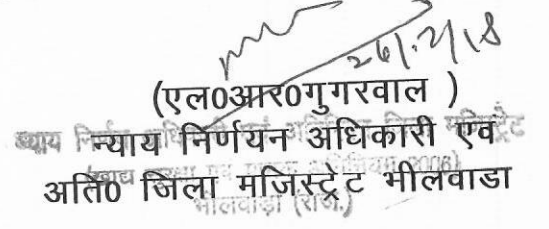 26/2/18
(एल०आर०गुगरवाल )
न्याय निर्णयन अधिकारी एंव
अति० जिला मजिस्ट्रेट भीलवाडा
भीलवाड़ा (राज.)